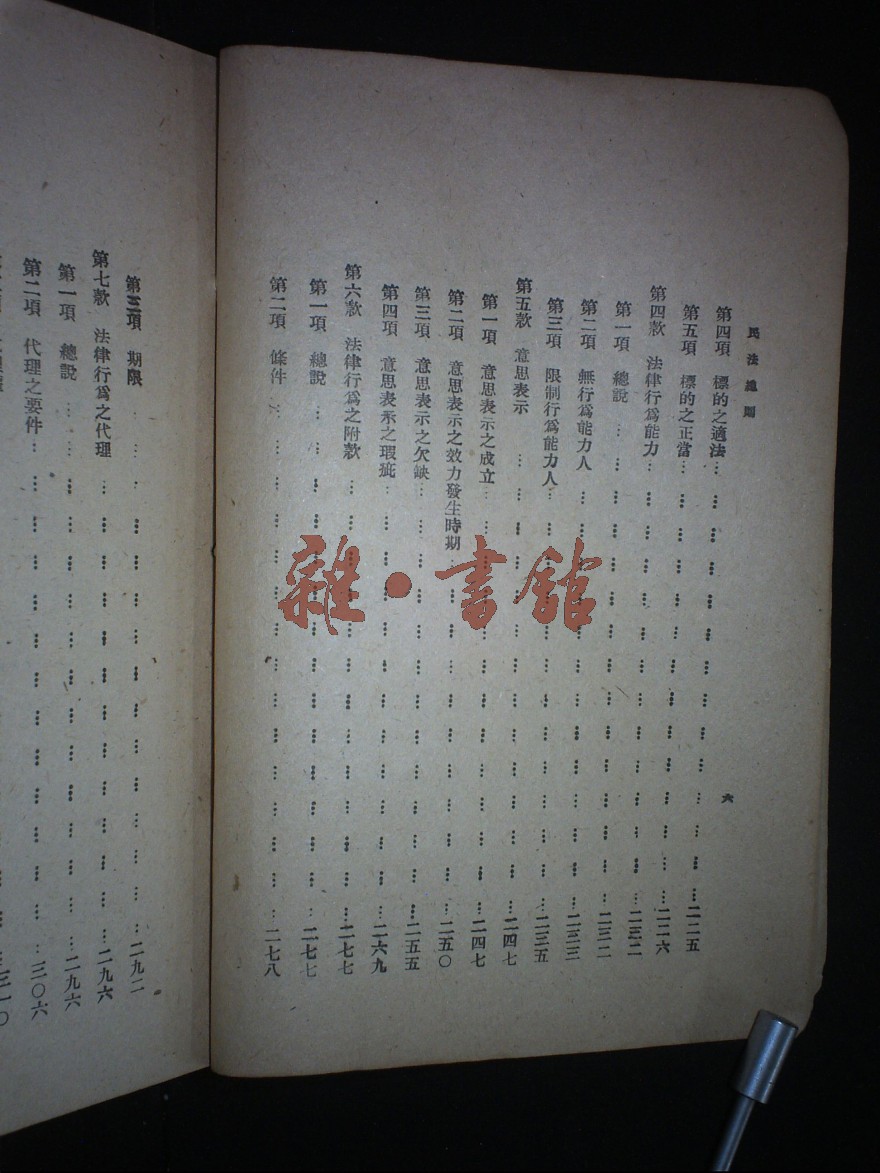 民法總則
六
第四項 標的之適法………………二二五
第五項 標的之正當………………二二六
第四款 法律行爲能力………………二三二
第一項 總說………………二三二
第二項 無行爲能力人………………二三三
第三項 限制行爲能力人………………二三五
第五款 意思表示………………二四七
第一項 意思表示之成立………………二四七
第二項 意思表示之效力發生時期………………二五〇
第三項 意思表示之欠缺………………二五五
第四項 意思表示之瑕疵………………二六九
第六款 法律行爲之附款………………二七七
第一項 總說………………二七七
第二項 條件………………二七八
第三項 期限………………二九二
第七款 法律行爲之代理………………二九六
第一項 總說………………二九六
第二項 代理之要件………………三〇六
雜·書館